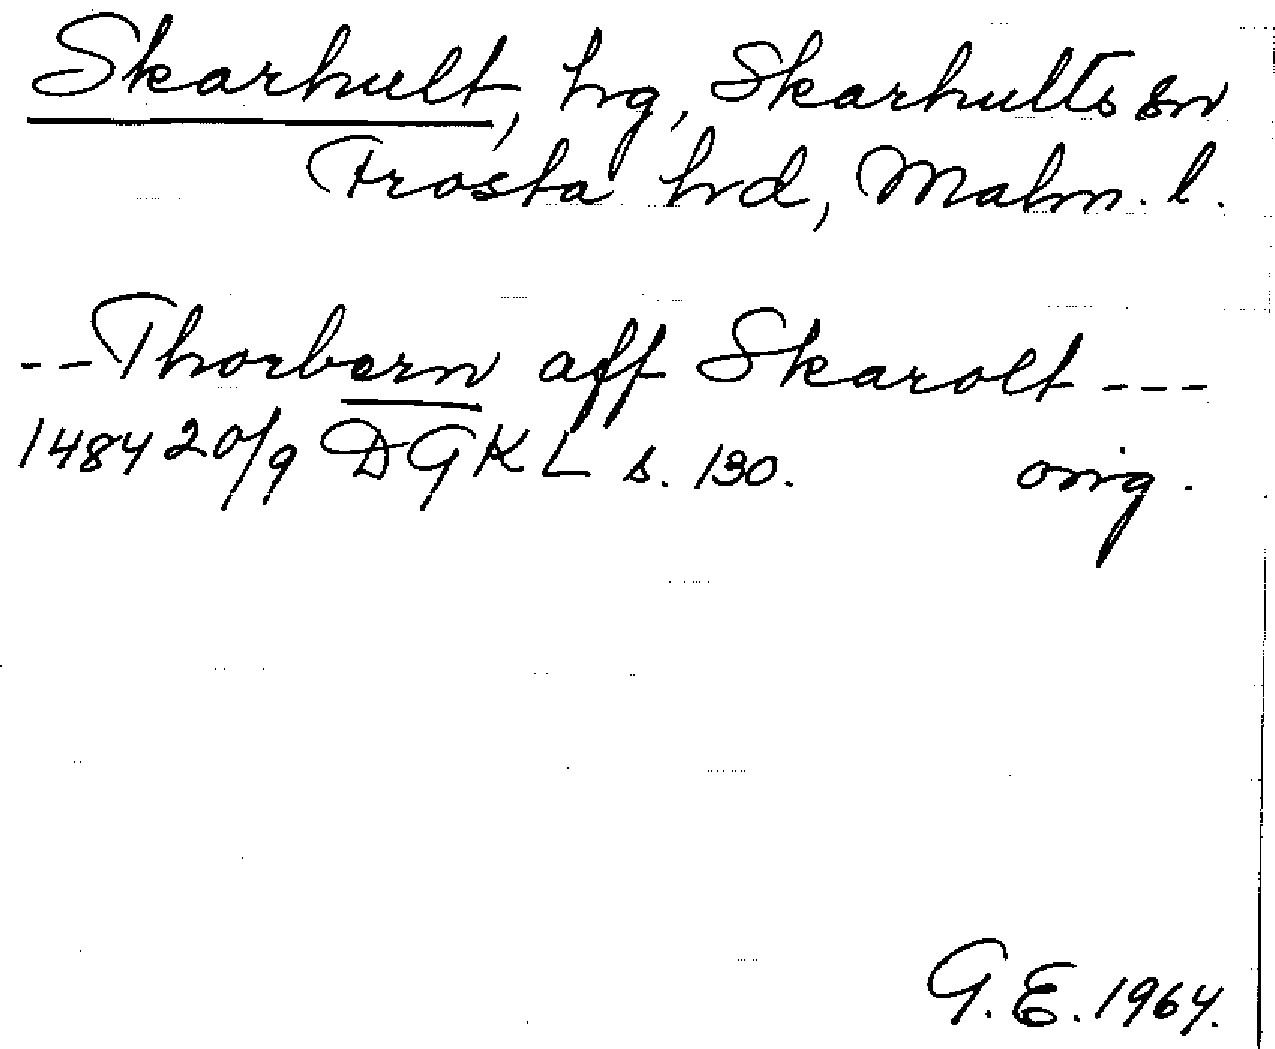 Skarhult, hg, Skarhults sn
Frosta hd, Malm. l.
-- Thorbern aff Skarolt ---
1484 20/9 DGKL s. 130. orig.
G.E. 1964.